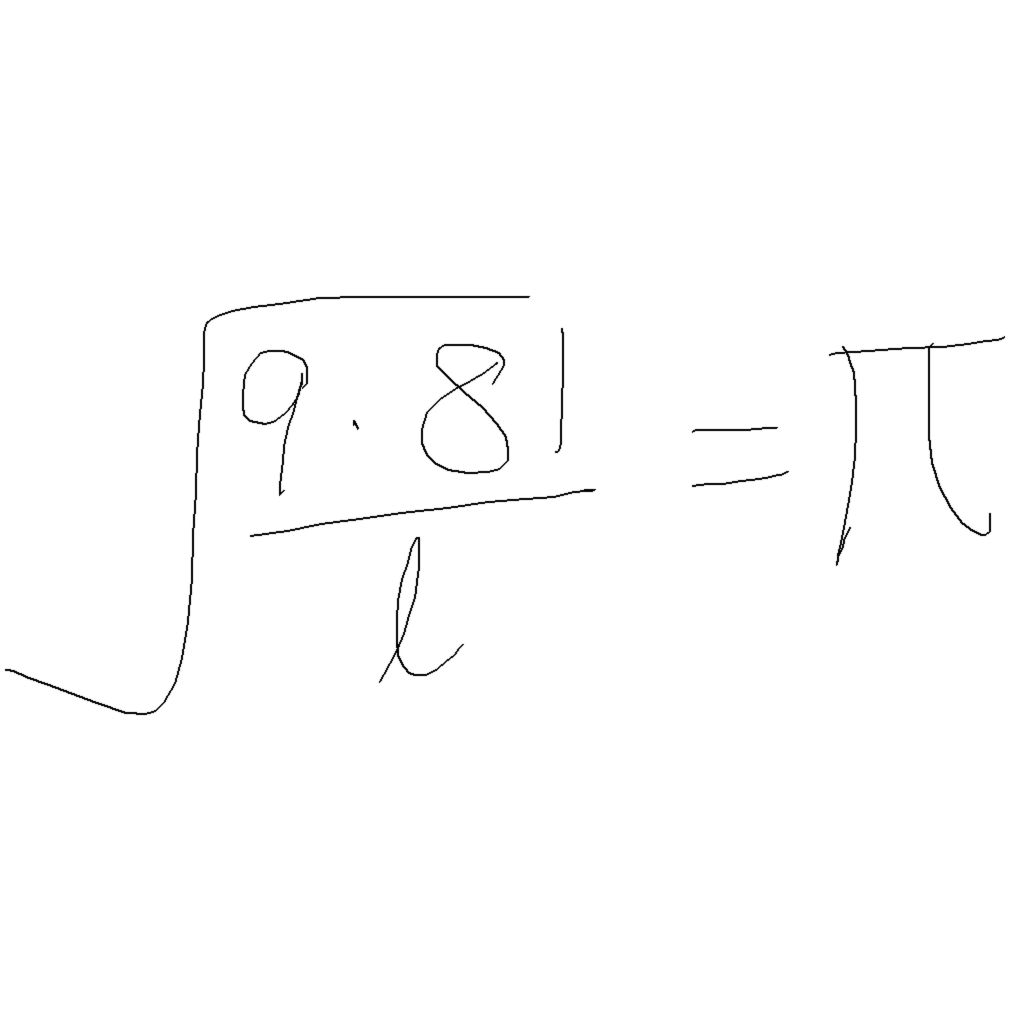 √(9.81/l) = π